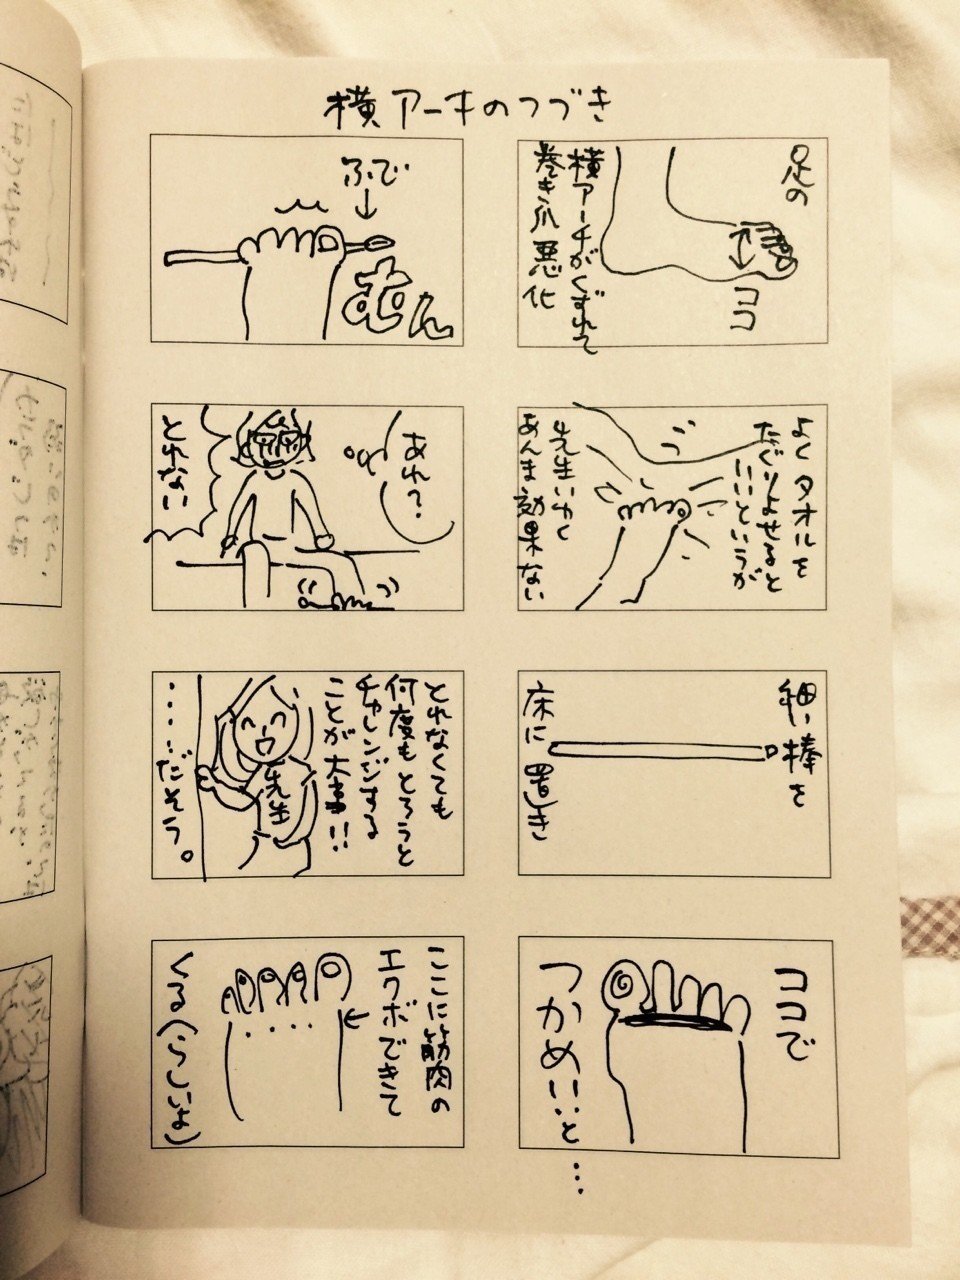 横アーキのつづき
足の
ココ
横アーチがくずれて
巻き爪悪化
よくタオルを
たぐりよせると
いいというが
先生いわく
あんま効果ない
細い棒を
床に置き
ココで
つかめいいと…
ふで
むん
あれ?
とれない
とれなくても
何度もとろうと
チャレンジする
ことが大事!!
先生
……だそう。
ここに筋肉の
エクボできて
くる(らしいよ)